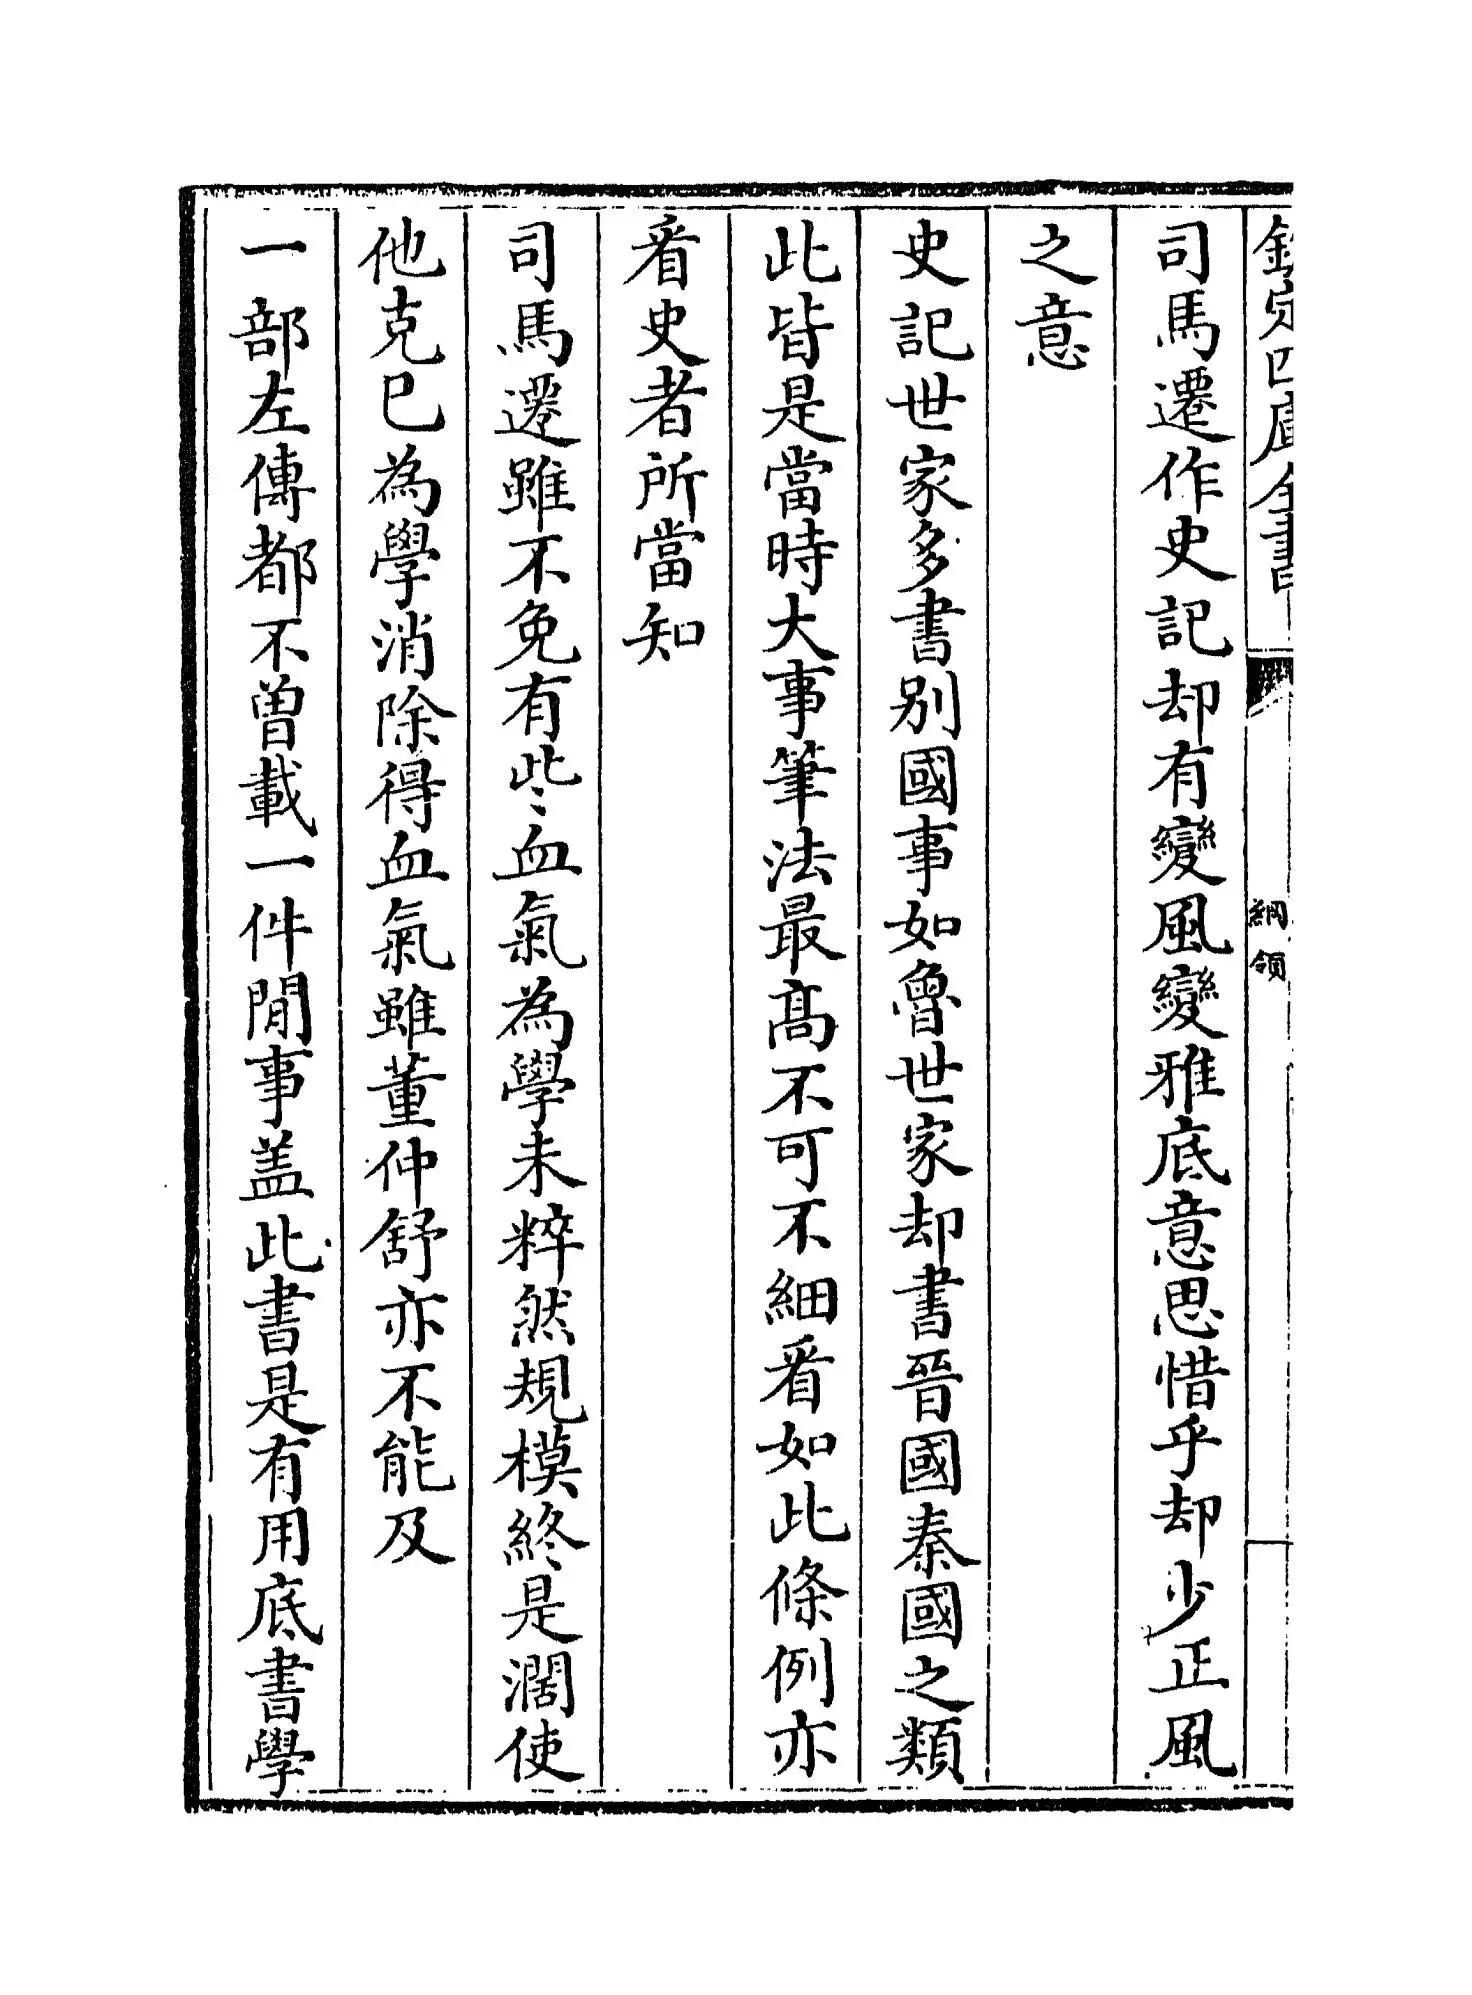 欽定四庫全書
綱領
司馬遷作史記却有變風變雅底意思惜乎却少正風
之意
史記世家多書别國事如魯世家却書晉國秦國之類
此皆是當時大事筆法最髙不可不細㸔如此條例亦
㸔史者所當知
司馬遷雖不免有些血氣為學未粹然規模終是濶使
他克己為學消除得血氣雖董仲舒亦不能及
一部左傳都不曾載一件閒事盖此書是有用底書學